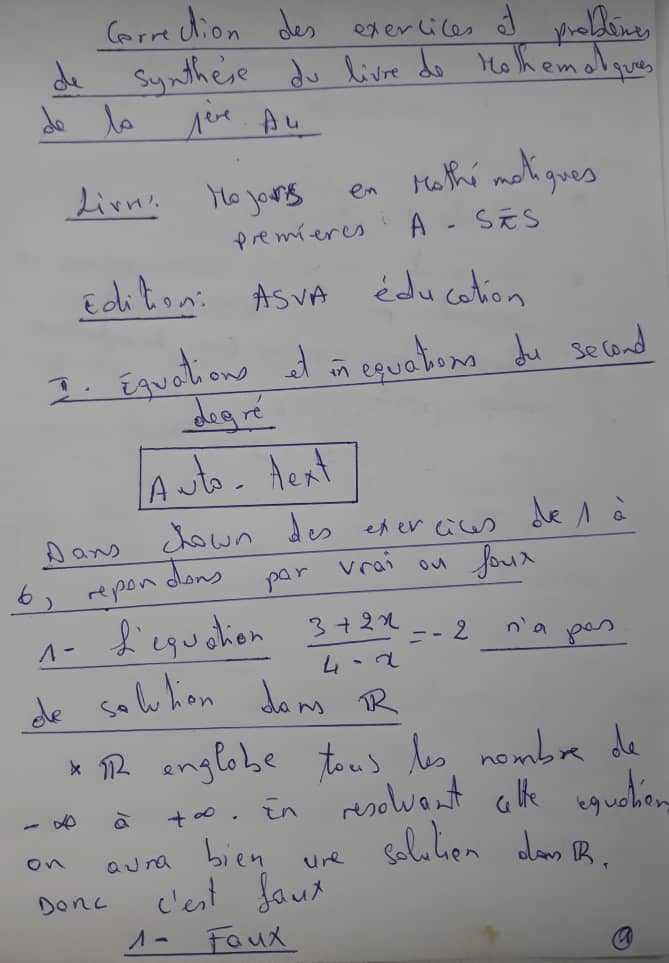 Correction des exercices et problèmes
de synthèse du livre de Mathematiques
de la 1ère A4
Livre: Majors en Mathématiques
premieres A - SES
Edition: ASVA éducation
I. Equations et inequations du second
degré
Auto-Text
Dans chacun des exercices de 1 à
6, repondons par vrai ou faux
1- L'equation (3+2x)/(4-x) = -2 n'a pas
de solution dans ℝ
* ℝ englobe tous les nombre de
-∞ à +∞. En resolvant cette equation
on aura bien une solution dans ℝ.
Donc c'est faux
1- Faux
①